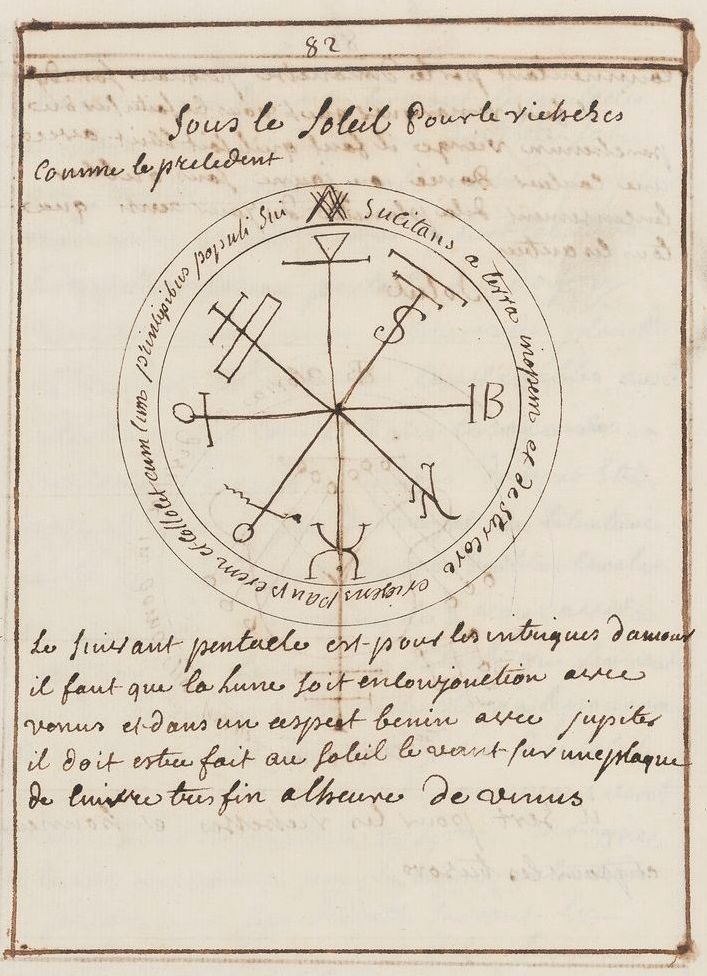 82
Sous le Soleil Pour le richeses
Comme le precedent
Sucitans a terra inopem et de Stercore erigens pauperem et Collocet eum Cum principibus populi Sui
S
B
Le Suivant pentacle est pour les intrigues d'amour
il faut que la lune soit en Conjonction avec
venus et dans un aspect benin avec jupiter
il doit estre fait au Soleil levant sur une plaque
de Cuivre tres fin a lheure de venus